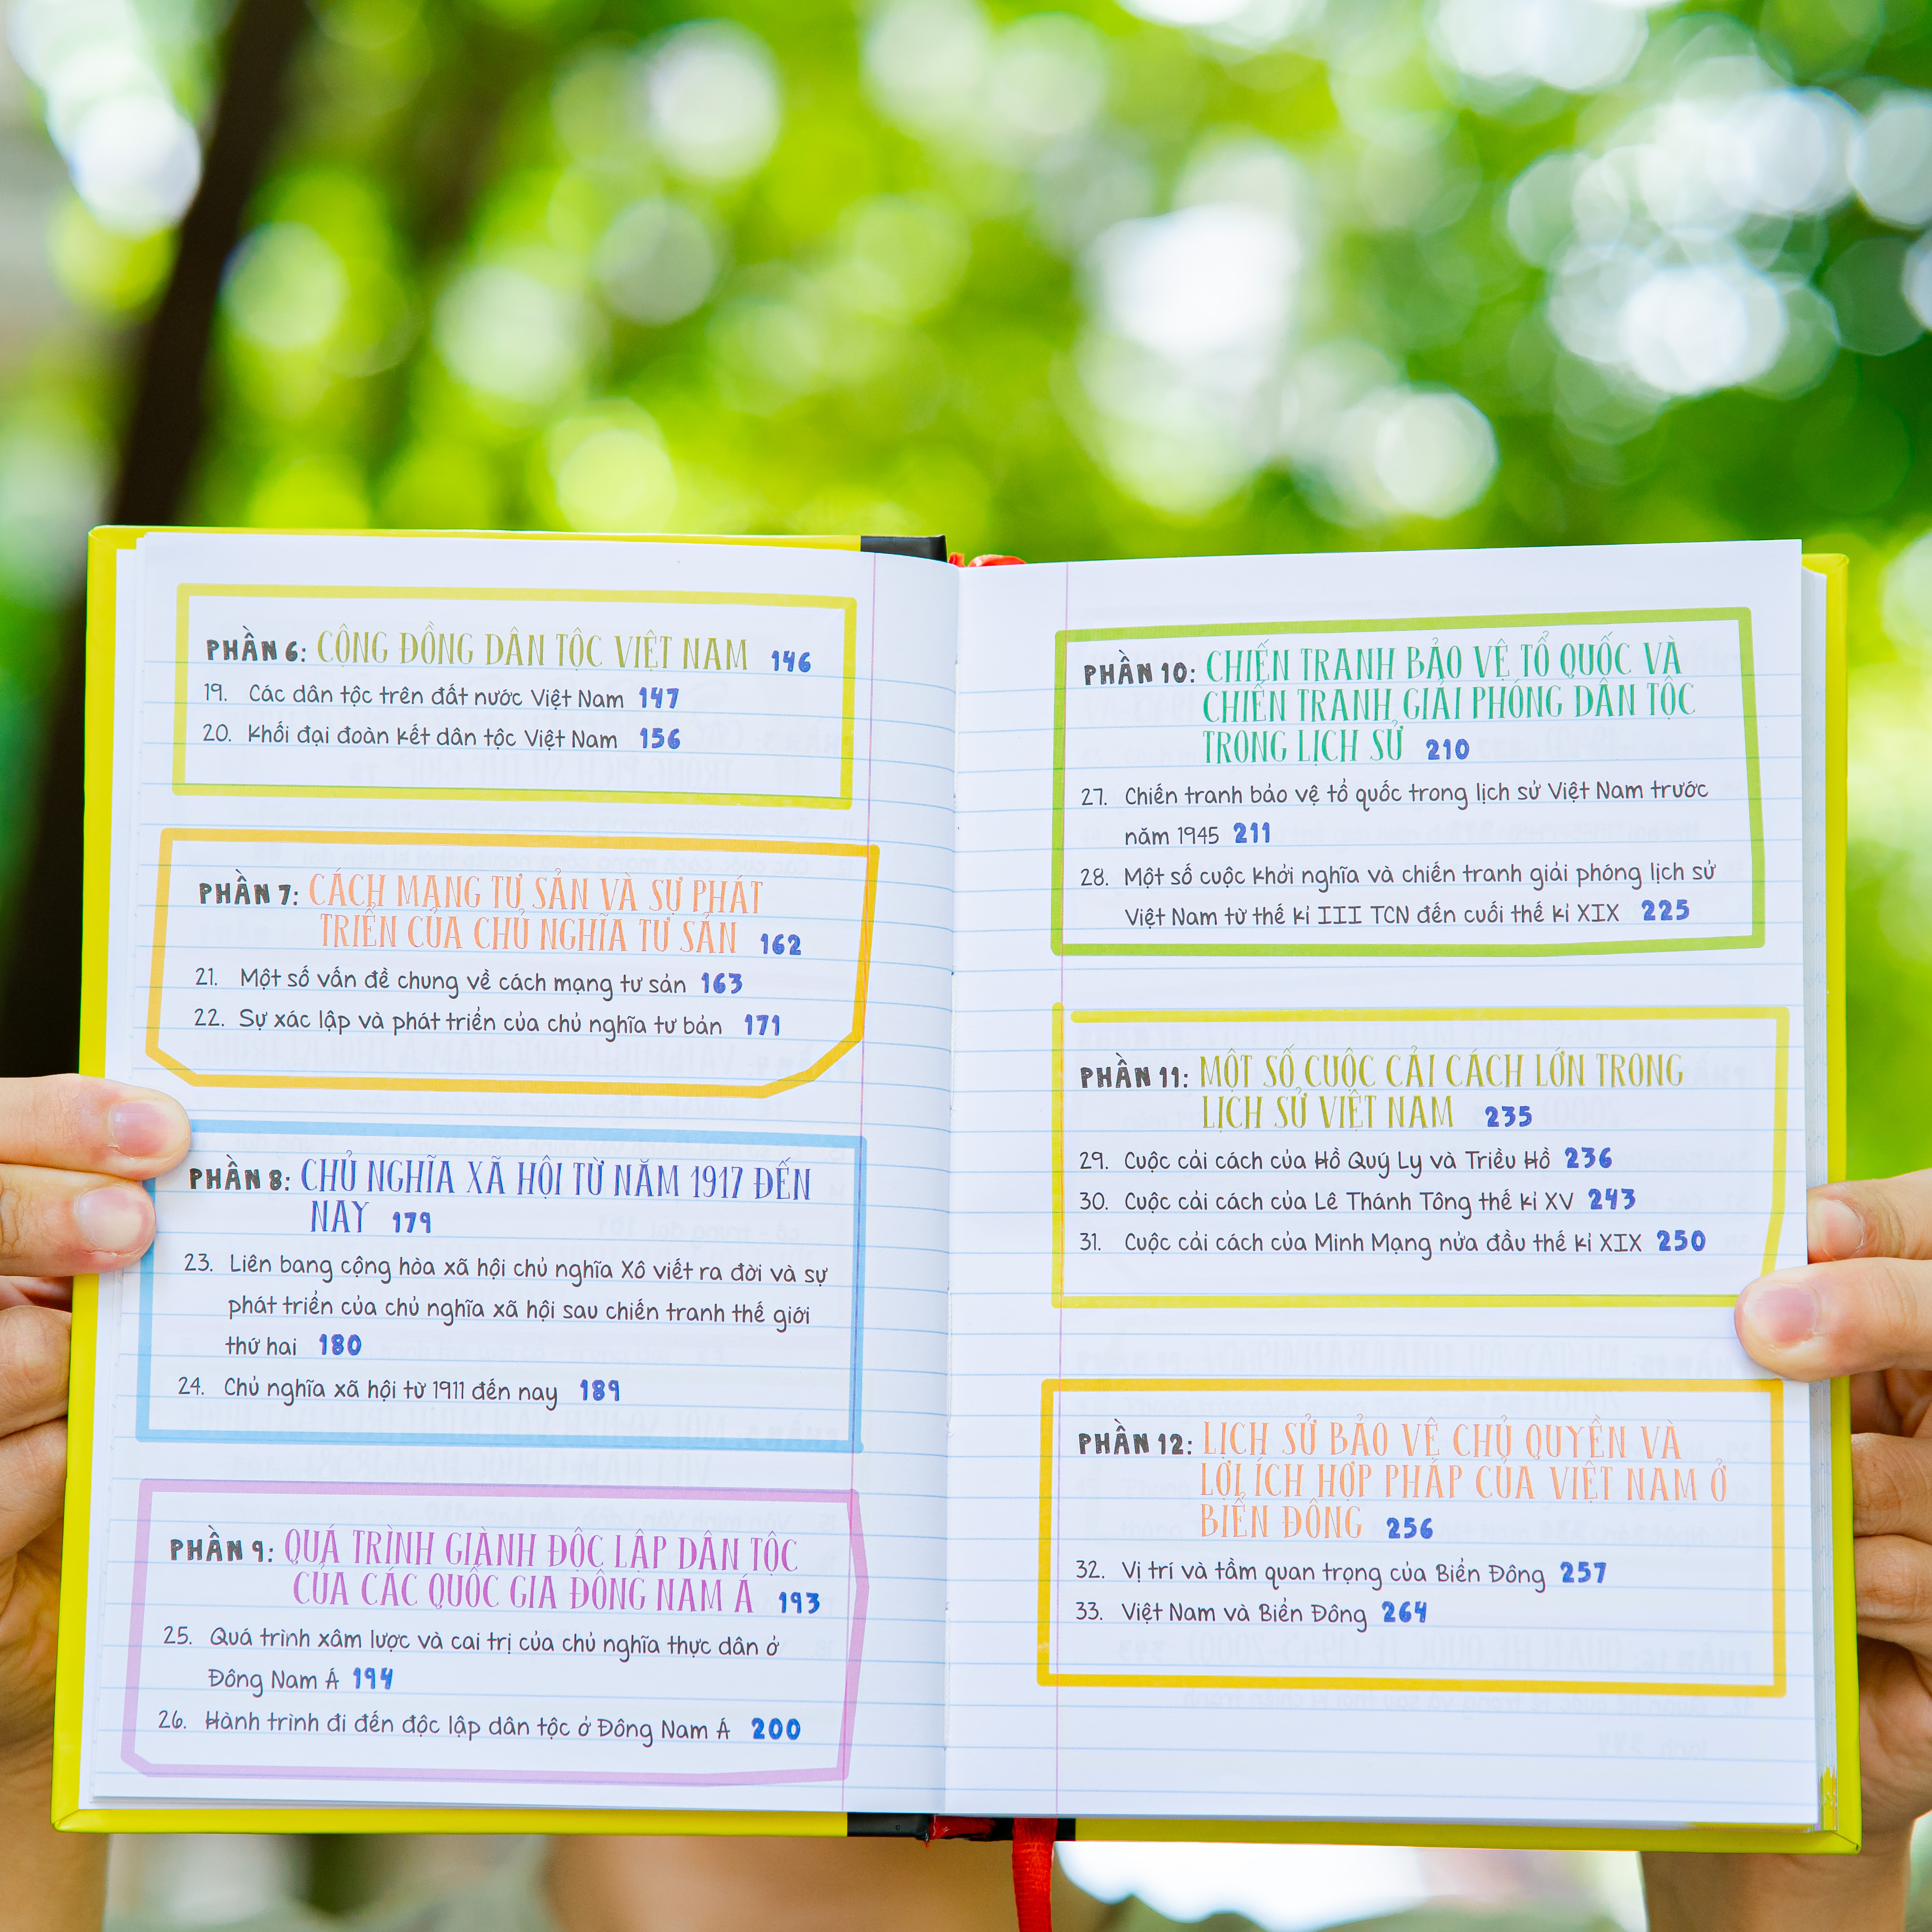 PHẦN 6: CỘNG ĐỒNG DÂN TỘC VIỆT NAM 146
19. Các dân tộc trên đất nước Việt Nam 147
20. Khối đại đoàn kết dân tộc Việt Nam 156
PHẦN 7: CÁCH MẠNG TƯ SẢN VÀ SỰ PHÁT
TRIỂN CỦA CHỦ NGHĨA TƯ SẢN 162
21. Một số vấn đề chung về cách mạng tư sản 163
22. Sự xác lập và phát triển của chủ nghĩa tư bản 171
PHẦN 8: CHỦ NGHĨA XÃ HỘI TỪ NĂM 1917 ĐẾN
NAY 179
23. Liên bang cộng hòa xã hội chủ nghĩa Xô viết ra đời và sự
phát triển của chủ nghĩa xã hội sau chiến tranh thế giới
thứ hai 180
24. Chủ nghĩa xã hội từ 1911 đến nay 189
PHẦN 9: QUÁ TRÌNH GIÀNH ĐỘC LẬP DÂN TỘC
CỦA CÁC QUỐC GIA ĐÔNG NAM Á 193
25. Quá trình xâm lược và cai trị của chủ nghĩa thực dân ở
Đông Nam Á 194
26. Hành trình đi đến độc lập dân tộc ở Đông Nam Á 200
PHẦN 10: CHIẾN TRANH BẢO VỆ TỔ QUỐC VÀ
CHIẾN TRANH GIẢI PHÓNG DÂN TỘC
TRONG LỊCH SỬ 210
27. Chiến tranh bảo vệ tổ quốc trong lịch sử Việt Nam trước
năm 1945 211
28. Một số cuộc khởi nghĩa và chiến tranh giải phóng lịch sử
Việt Nam từ thế kỉ III TCN đến cuối thế kỉ XIX 225
PHẦN 11: MỘT SỐ CUỘC CẢI CÁCH LỚN TRONG
LỊCH SỬ VIỆT NAM 235
29. Cuộc cải cách của Hồ Quý Ly và Triều Hồ 236
30. Cuộc cải cách của Lê Thánh Tông thế kỉ XV 243
31. Cuộc cải cách của Minh Mạng nửa đầu thế kỉ XIX 250
PHẦN 12: LỊCH SỬ BẢO VỆ CHỦ QUYỀN VÀ
LỢI ÍCH HỢP PHÁP CỦA VIỆT NAM Ở
BIỂN ĐÔNG 256
32. Vị trí và tầm quan trọng của Biển Đông 257
33. Việt Nam và Biển Đông 264